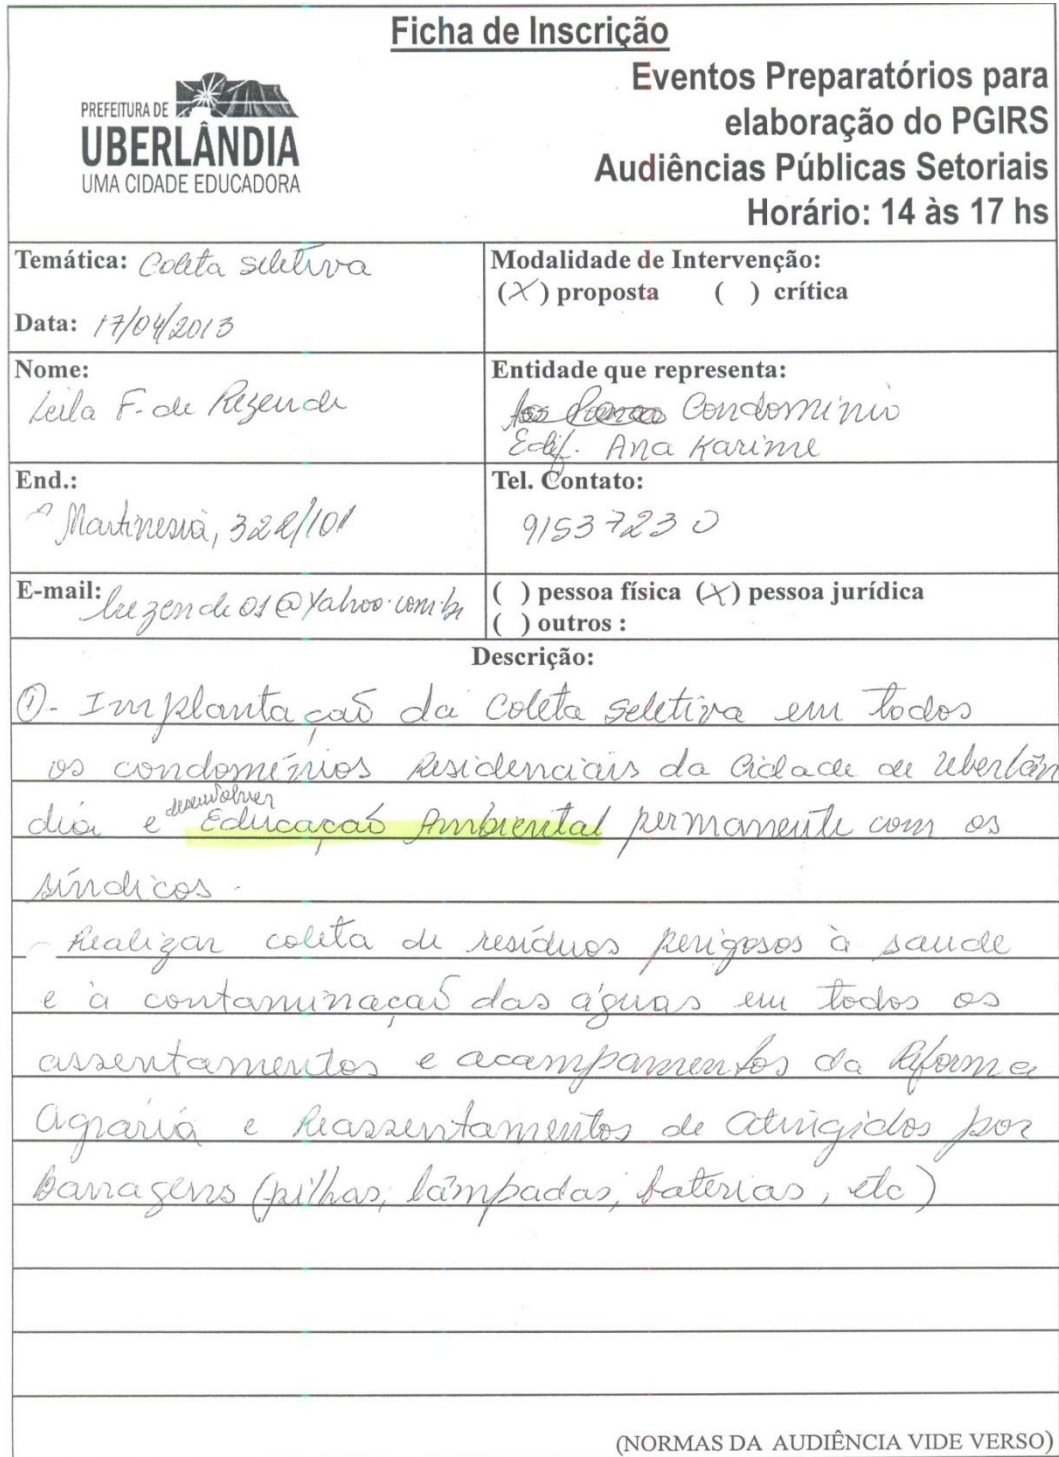 Ficha de Inscrição
PREFEITURA DE
UBERLÂNDIA
UMA CIDADE EDUCADORA
Eventos Preparatórios para
elaboração do PGIRS
Audiências Públicas Setoriais
Horário: 14 às 17 hs
Temática: Coleta seletiva
Data: 17/04/2013
Modalidade de Intervenção:
(X) proposta ( ) crítica
Nome:
Leila F. de Rezende
Entidade que representa:
Condomínio
Edif. Ana Karime
End.:
Martinesia, 322/101
Tel. Contato:
91537230
E-mail: lrezende01@yahoo.com.br
( ) pessoa física (X) pessoa jurídica
( ) outros :
Descrição:
①- Implantação da Coleta seletiva em todos
os condomínios Residenciais da Cidade de Uberlân
dia e desenvolver Educação Ambiental permanente com os
síndicos.
- Realizar coleta de resíduos perigosos à saude
e à contaminação das águas em todos os
assentamentos e acampamentos da Reforma
Agrária e Reassentamentos de Atingidos por
Barragens (pilhas, lâmpadas, baterias, etc)
(NORMAS DA AUDIÊNCIA VIDE VERSO)